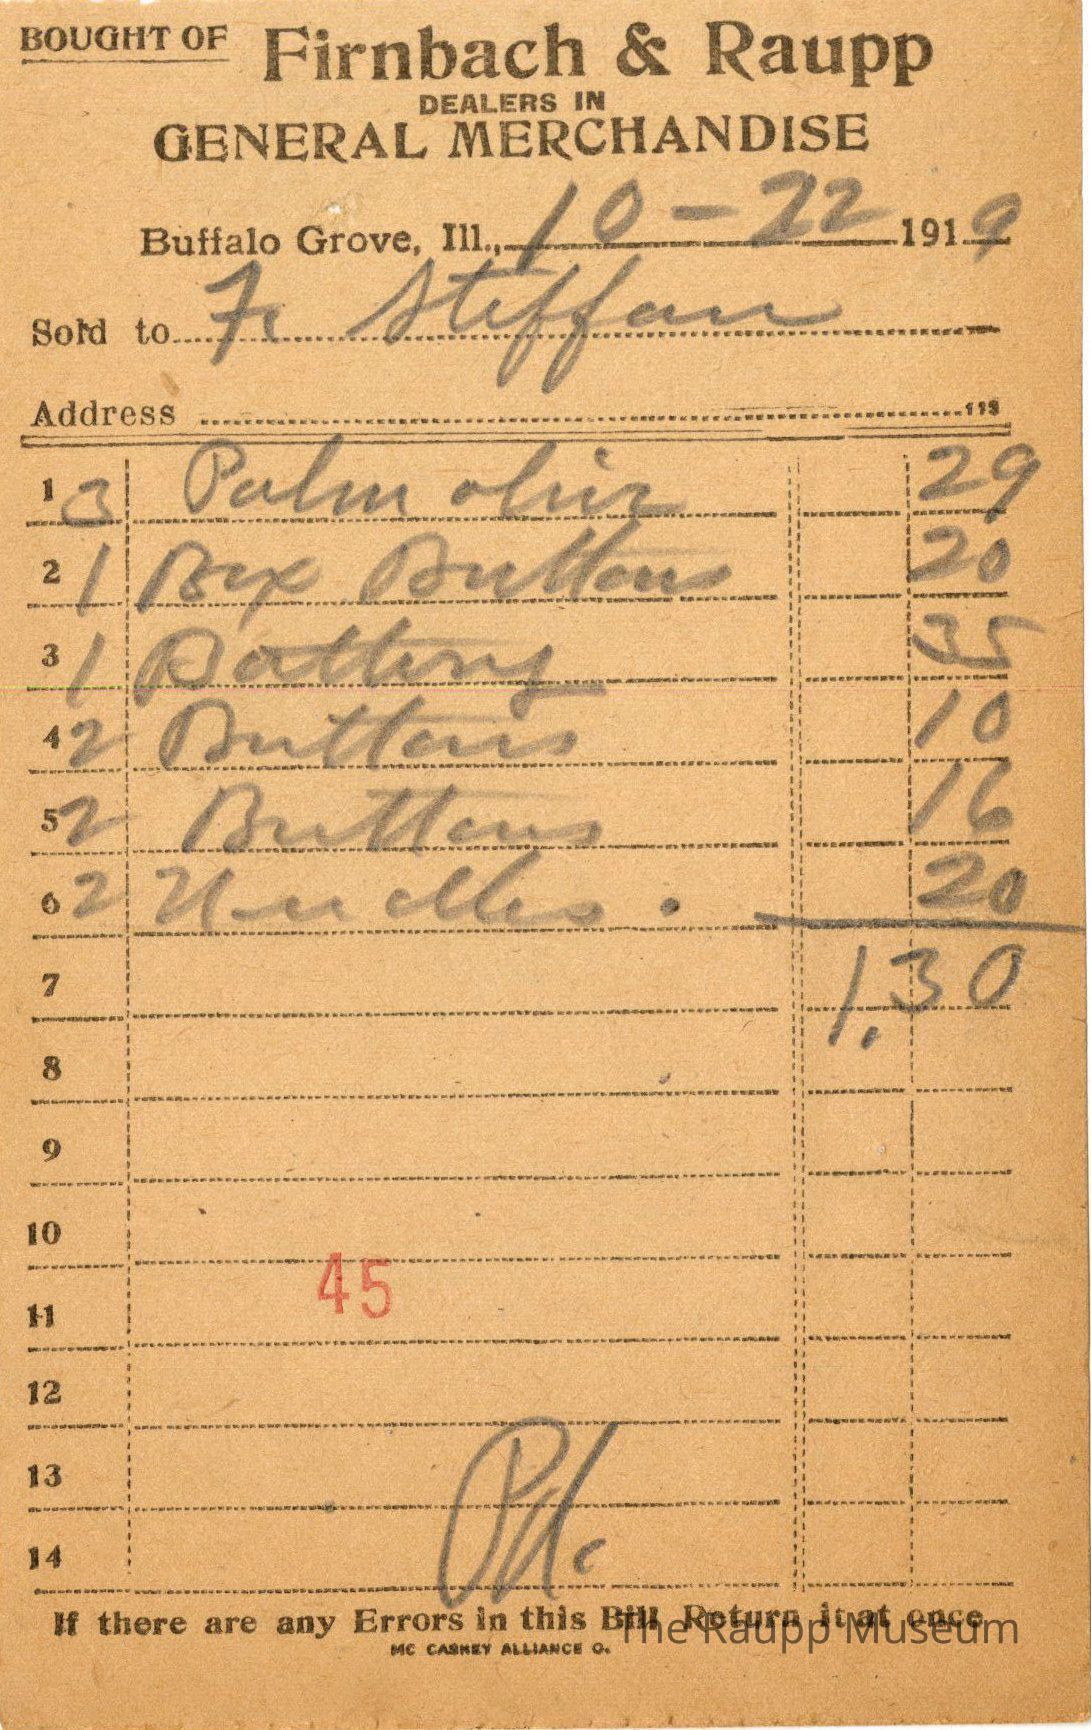 BOUGHT OF Firnbach & Raupp
DEALERS IN
GENERAL MERCHANDISE
Buffalo Grove, Ill., 10-22 1919
Sold to Steffan
Address
1 3 Palm olive 29
2 1 Box Buttons 20
3 1 Battery 35
4 2 Buttons 10
5 2 Buttons 16
6 2 Needles. 20
7 1.30
8
9
10
45
11
12
13
14
If there are any Errors in this Bill Return it at once
The Raupp Museum
MC CASKEY ALLIANCE O.